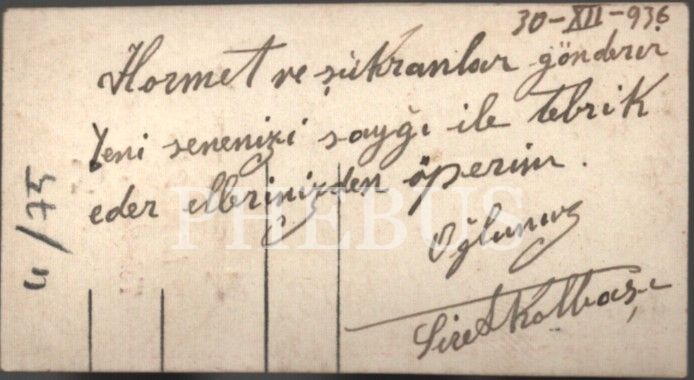 30-XII-936
Hormet ve şükranlar gönderir
Yeni senenizi saygı ile tebrik
eder ellerinizden öperim.
Oğlunuz
Siret Kolbaşı
4/75
PHEBUS